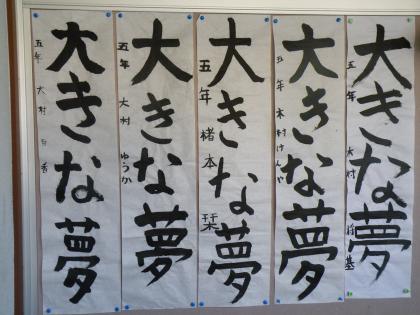 大きな夢
五年 大村
大きな夢
五年 木村けんや
大きな夢
五年 緒本 栞
大きな夢
五年 大村 ゆうか
大きな夢
五年 大村